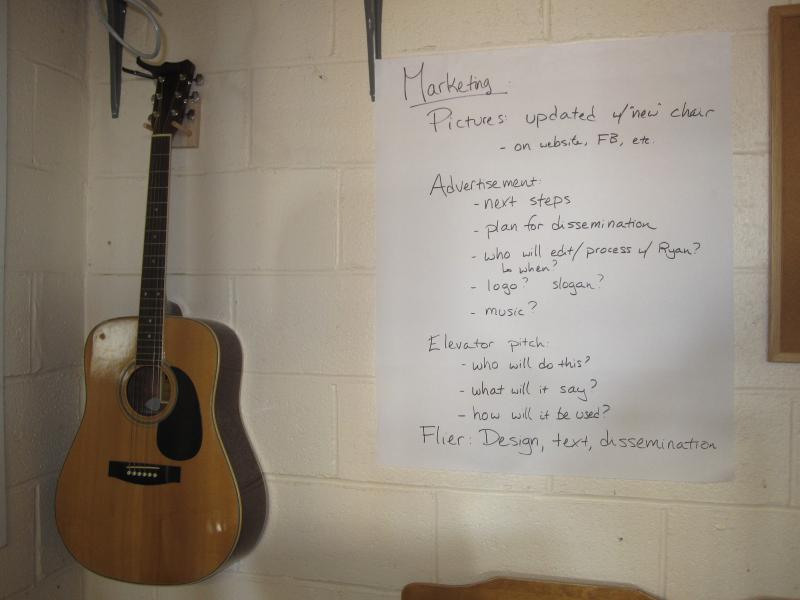 Marketing:
Pictures: updated w/ "new" chair
- on website, FB, etc.
Advertisement:
- next steps
- plan for dissemination
- who will edit/process w/ Ryan?
↳ when?
- logo? slogan?
- music?
Elevator pitch:
- who will do this?
- what will it say?
- how will it be used?
Flier: Design, text, dissemination